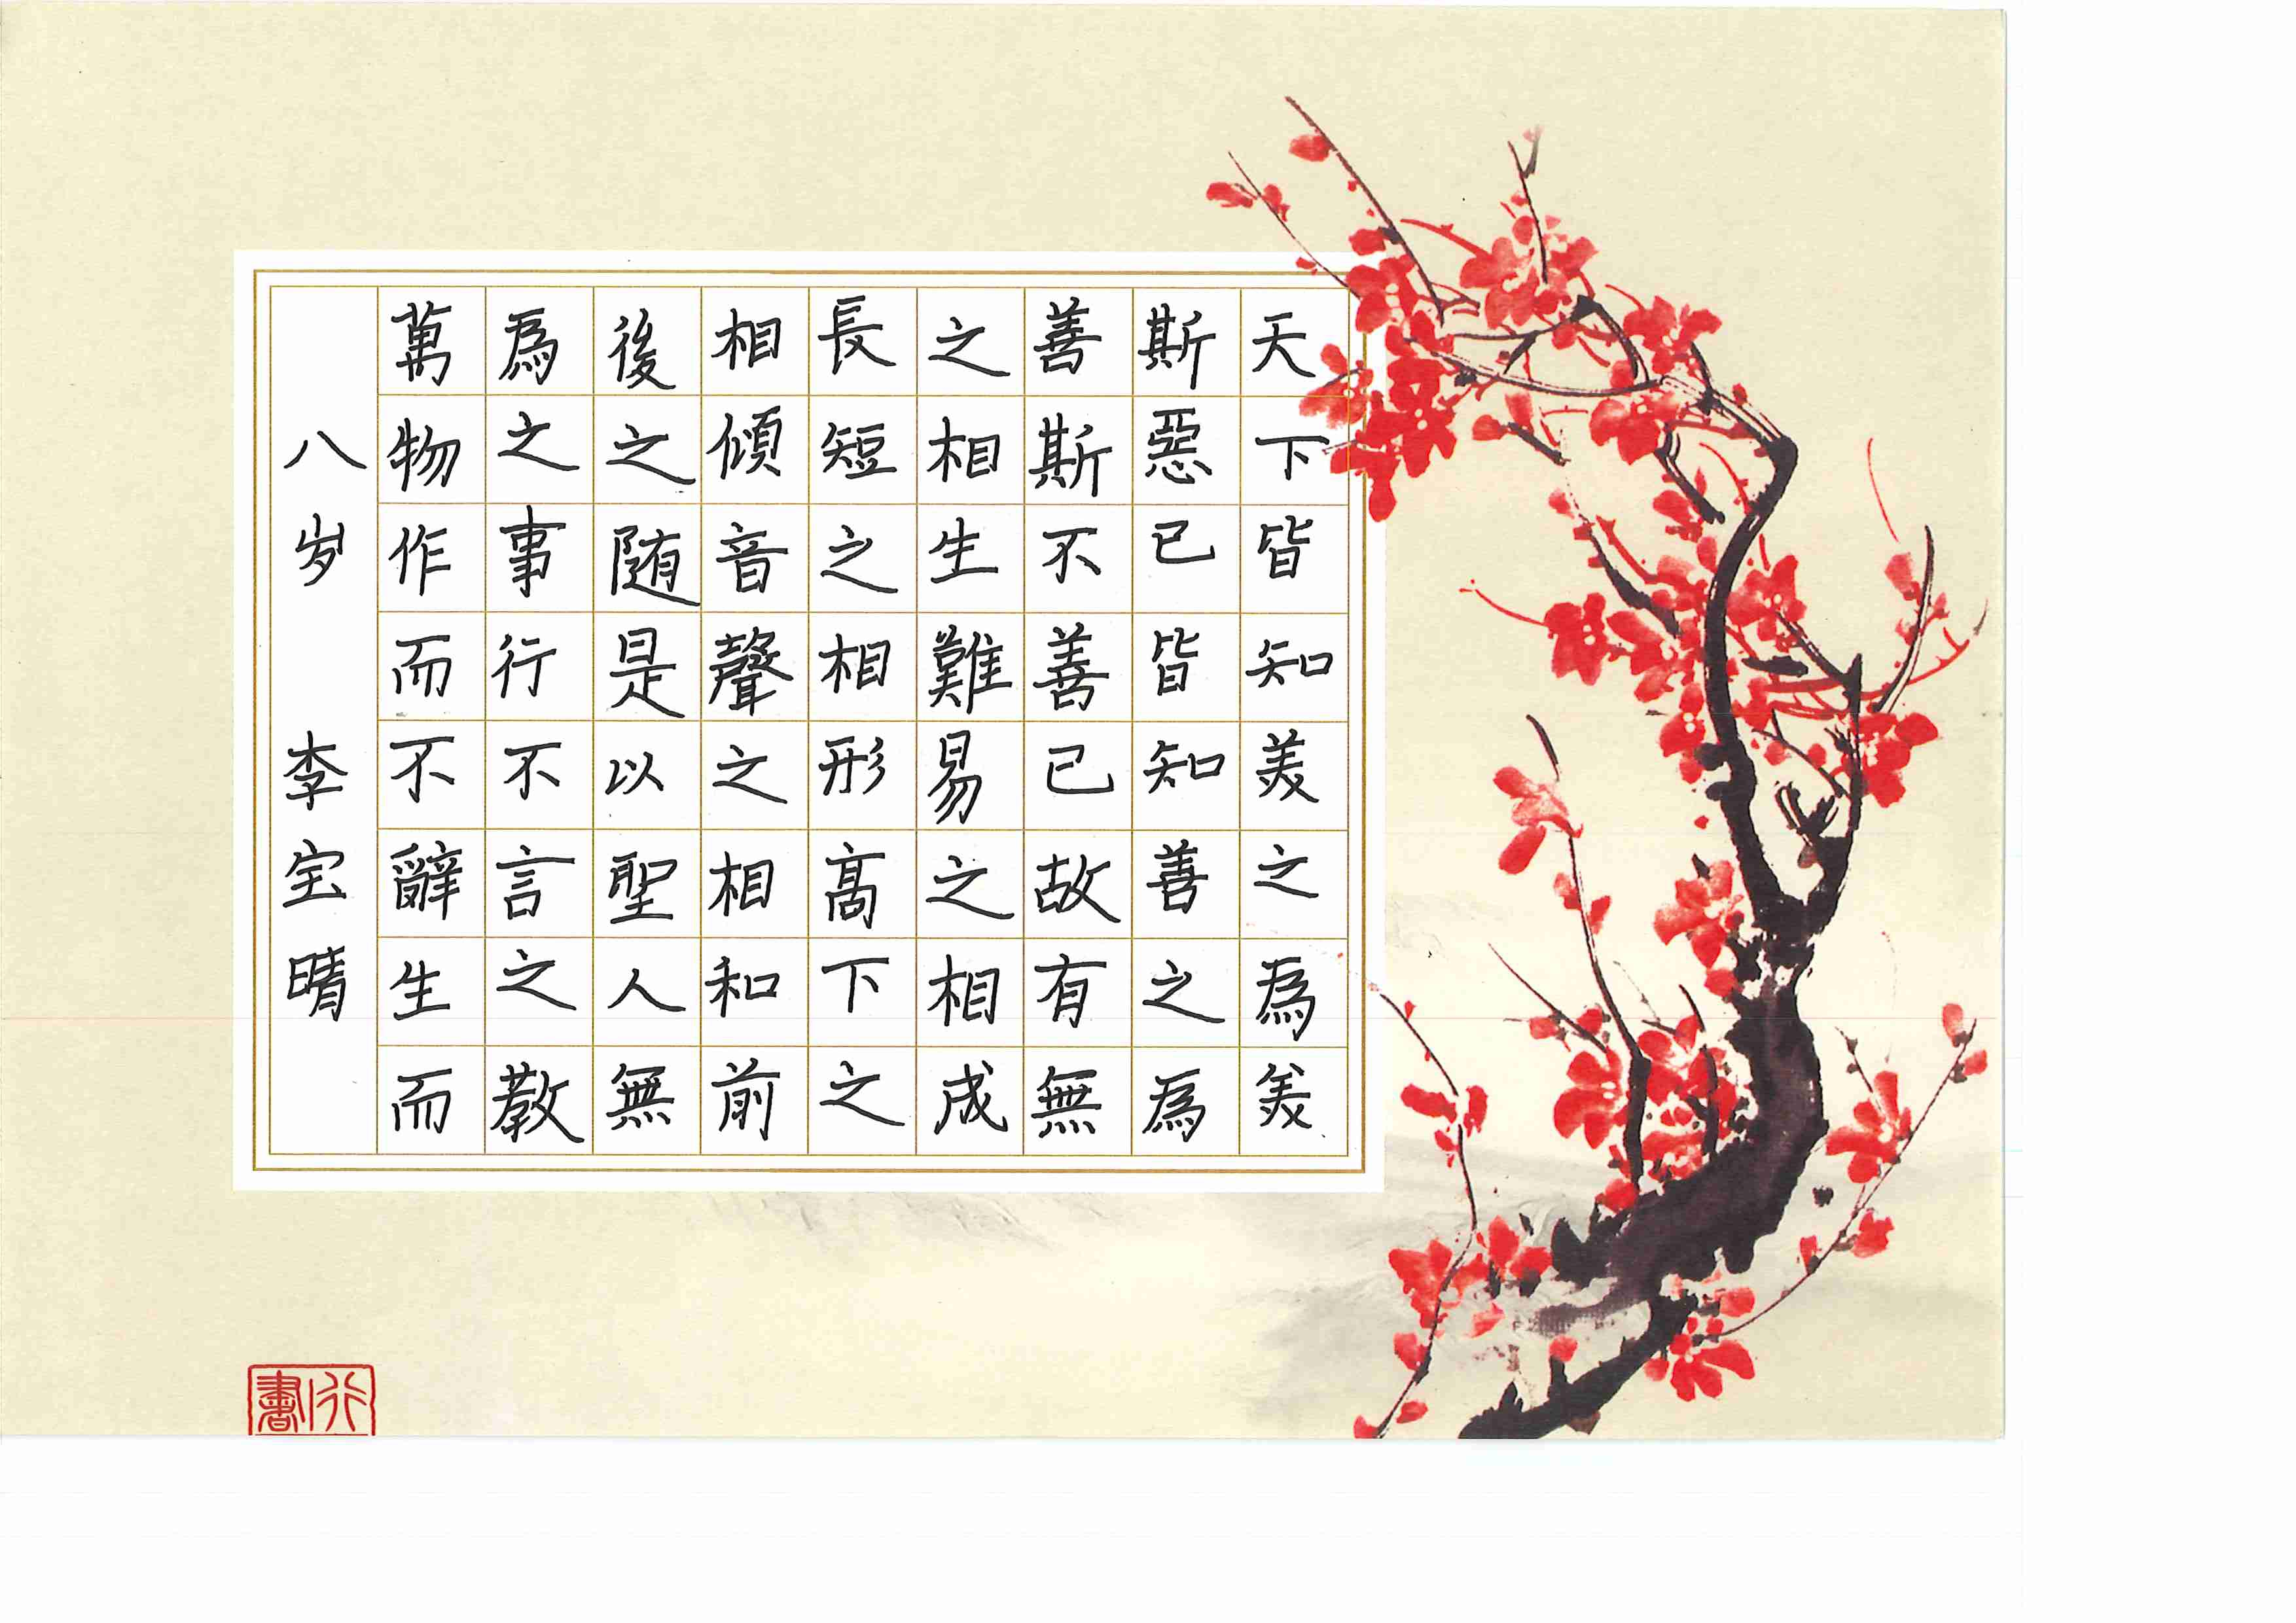 天下皆知美之為美
斯惡已皆知善之為
善斯不善已故有無
之相生難易之相成
長短之相形高下之
相傾音聲之相和前
後之随是以聖人無
為之事行不言之教
萬物作而不辭生而
八岁 李宝晴
行書